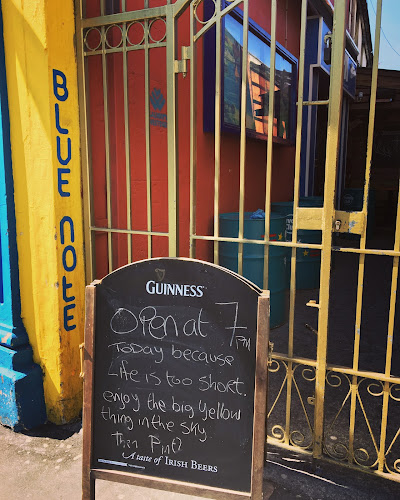 BLUE NOTE
GUINNESS
Open at 7pm
Today because
Life is too short.
enjoy the big yellow
thing in the sky.
Then Pint?
A taste of IRISH BEERS